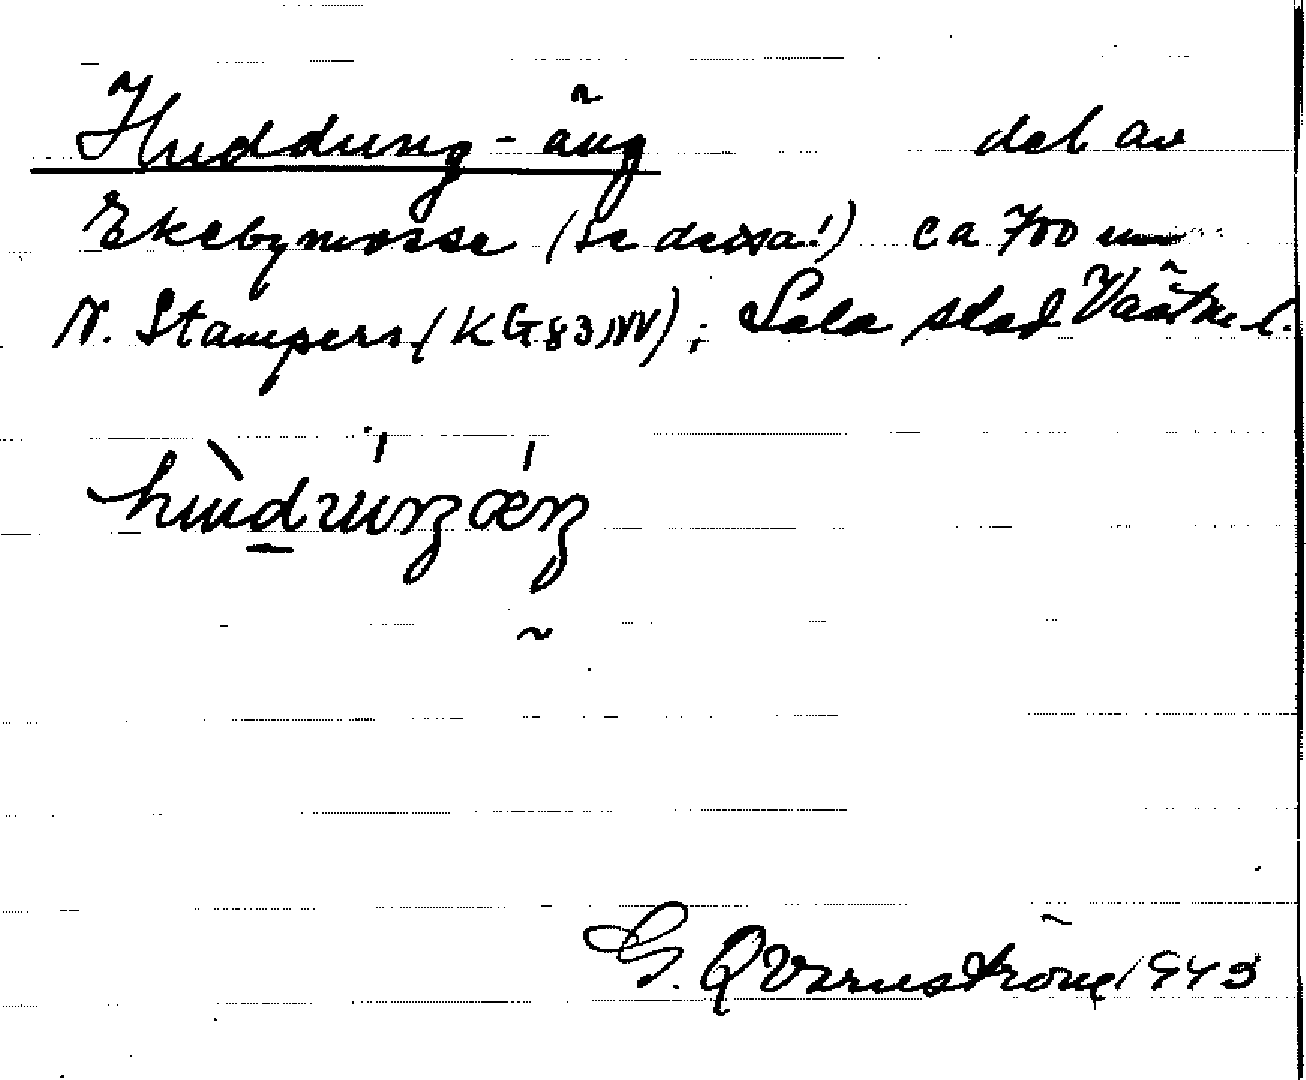 Huddung-äng del av
Ekebymosse (se dessa!) ca 700 m
N. Stampers (KG83NV); Sala stad Västm. l.
G. Qvarnström 1945